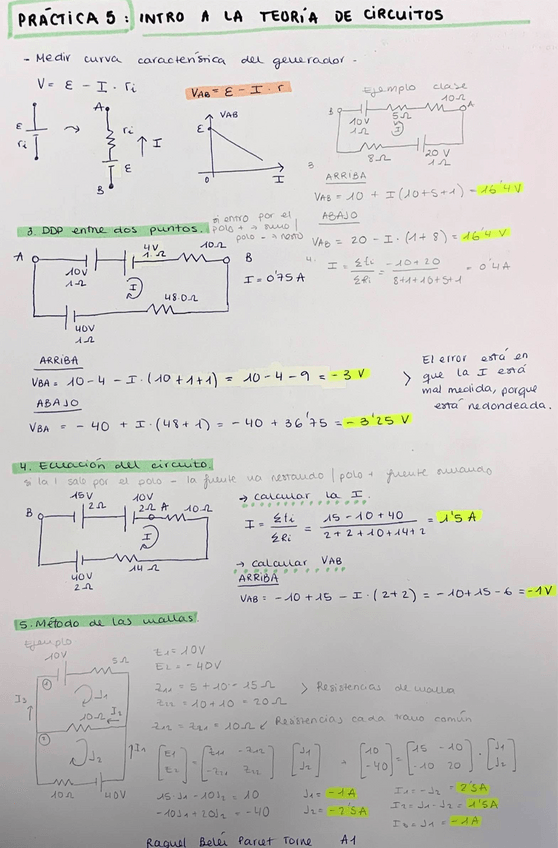 PRÁCTICA 5: INTRO A LA TEORÍA DE CIRCUITOS
- Medir curva característica del generador -
V = ε - I · ri
VAB = ε - I · r
Ejemplo clase
A
ε
ri
ri
↑ I
ε
B
VAB
ε
0
I
B
10V
1Ω
5Ω
10Ω
A
I
8Ω
20V
1Ω
3
ARRIBA
VAB = 10 + I(10+5+1) = 16'4V
ABAJO
VAB = 20 - I · (1+8) = 16'4V
4. I = Σεi / ΣRi = -10+20 / 8+1+10+5+1 = 0'4A
3. DDP entre dos puntos.
si entro por el
polo + → sumo |
polo - → resto
A
10V
1Ω
4V
1Ω
10Ω
B
I
I = 0'75 A
48.0Ω
40V
1Ω
ARRIBA
VBA = 10 - 4 - I · (10+1+1) = 10 - 4 - 9 = -3 V
ABAJO
VBA = -40 + I · (48+1) = -40 + 36'75 = -3'25 V
> El error está en
que la I está
mal medida, porque
está redondeada.
4. Ecuación del circuito.
si la I sale por el polo - la fuente va restando | polo + fuente sumando
B
15V
2Ω
10V
2Ω
A
10Ω
I
14Ω
40V
2Ω
→ calcular la I.
I = Σεi / ΣRi = 15-10+40 / 2+2+10+14+2 = 1'5 A
→ calcular VAB
ARRIBA
VAB = -10+15 - I · (2+2) = -10+15-6 = -1V
5. Método de las mallas.
Ejemplo
10V
5Ω
1
J1
I3
10Ω
I2
2
J2
↑I1
10Ω
40V
E1 = 10V
E2 = -40V
Z11 = 5+10 = 15Ω
Z22 = 10+10 = 20Ω
> Resistencias de malla
Z12 = Z21 = 10Ω < Resistencias cada tramo común
[E1 E2] = [Z11 -Z12 -Z21 Z22] [J1 J2] → [10 -40] = [15 -10 -10 20] · [J1 J2]
15·J1 - 10J2 = 10
J1 = -1A
I1 = -J2 = 2'5A
-10J1 + 20J2 = -40
J2 = -2'5A
I2 = J1 - J2 = 1'5A
I3 = J1 = -1A
Raquel Belén Parcet Torne A1